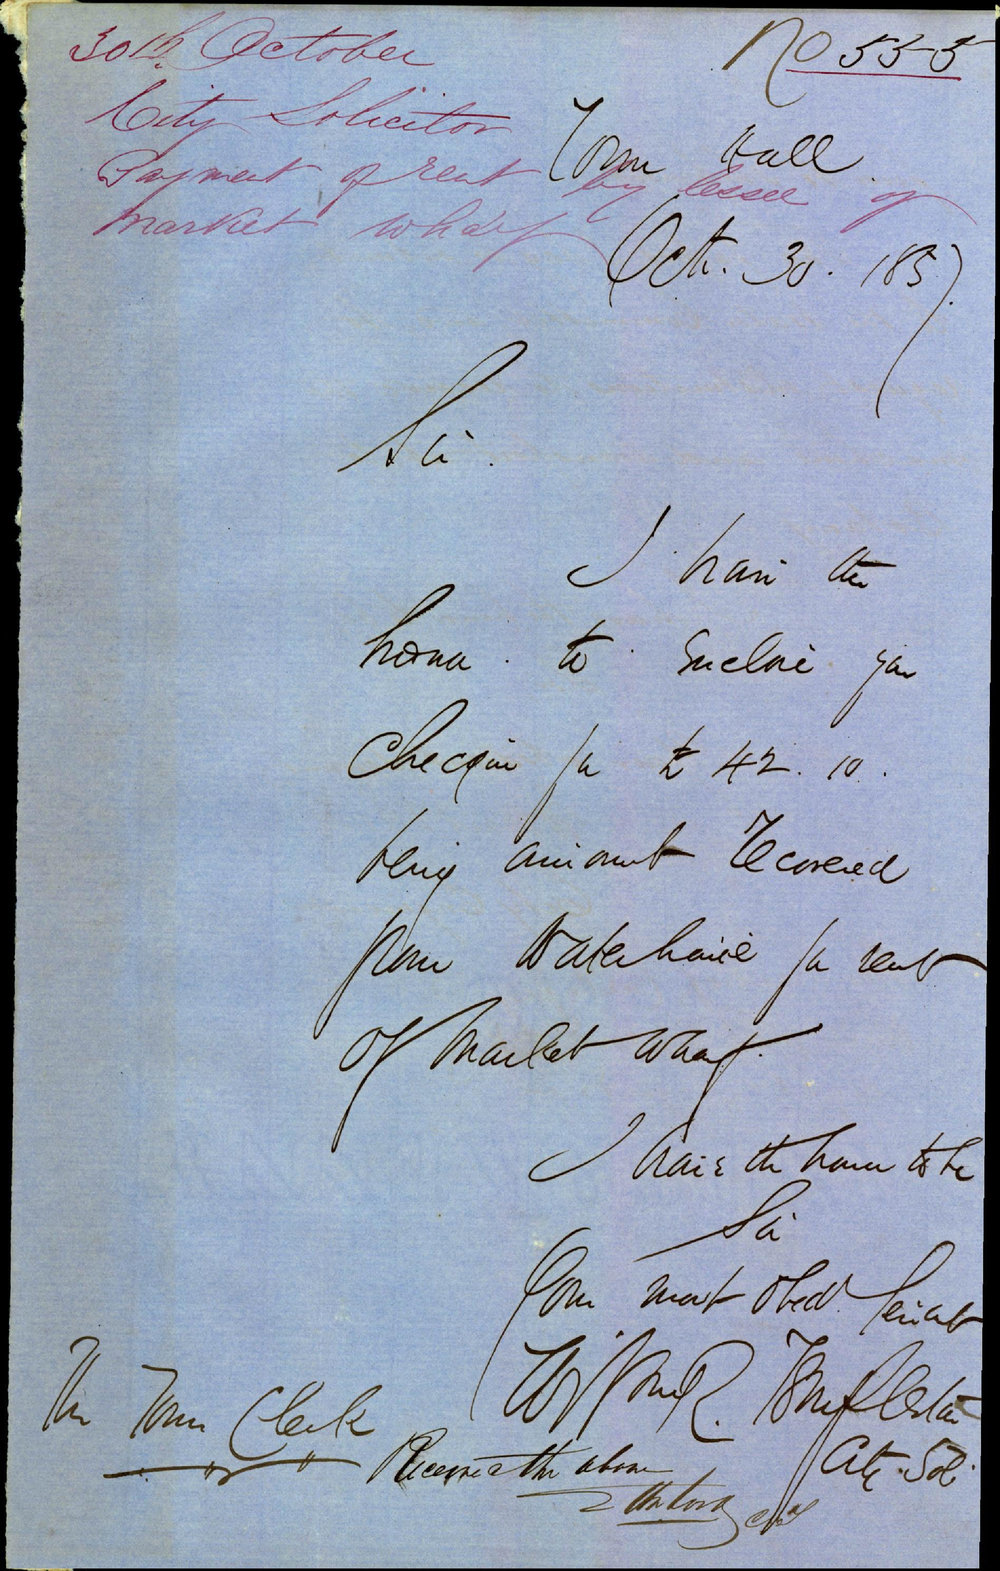 No 555
30th October
City Solicitor
Payment of rent by lessee of
market wharf
Town Hall
Oct. 30. 1857.
Sir.
I have the
honor to enclose you
cheque for £ 42. 10.
being amount recovered
from Waterhouse for rent
of Market Wharf.
I have the honor to be
Sir
Your most obed Servant
R.
City Sol.
The Town Clerk
Received the above